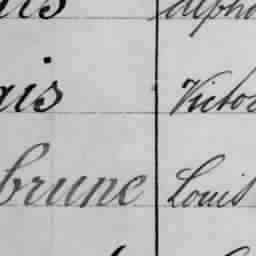 ais Alpho
ais Victo
brune Louis